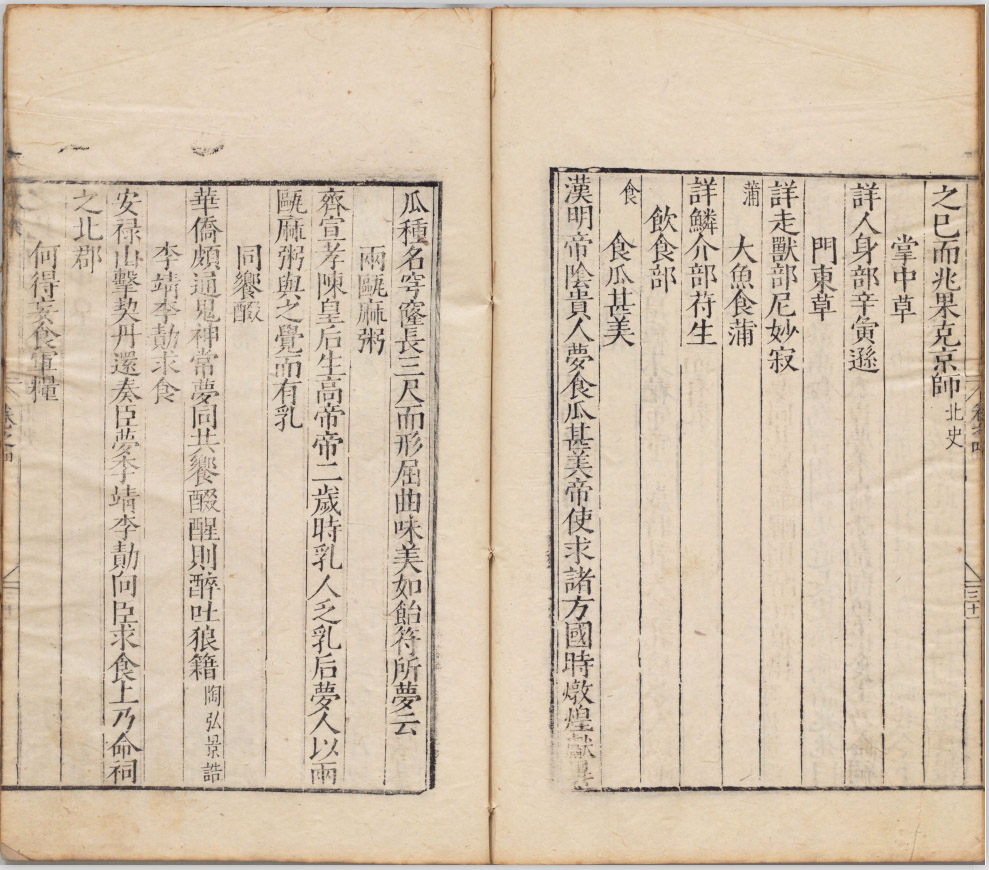 之巳而兆果克京師北史
掌中草
詳人身部辛寅遜
門東草
詳走獸部尼妙寂
大魚食蒲
蒲
詳鱗介部苻生
飲食部
食瓜甚美
食
漢明帝陰貴人夢食瓜甚美帝使求諸方國時燉煌獻異
瓜種名穹窿長三尺而形屈曲味美如飴符所夢云
兩甌麻粥
齊宣孝陳皇后生高帝帝二歲時乳人乏乳后夢人以兩
甌麻粥與之覺而有乳
同饗醊
華僑頗通鬼神常夢同共饗醊醒則醉吐狼籍陶弘景誥
李靖李勣求食
安祿山擊契丹還奏臣夢李靖李勣向臣求食上乃命祠
之北郡
何得妄食軍糧
卷之四